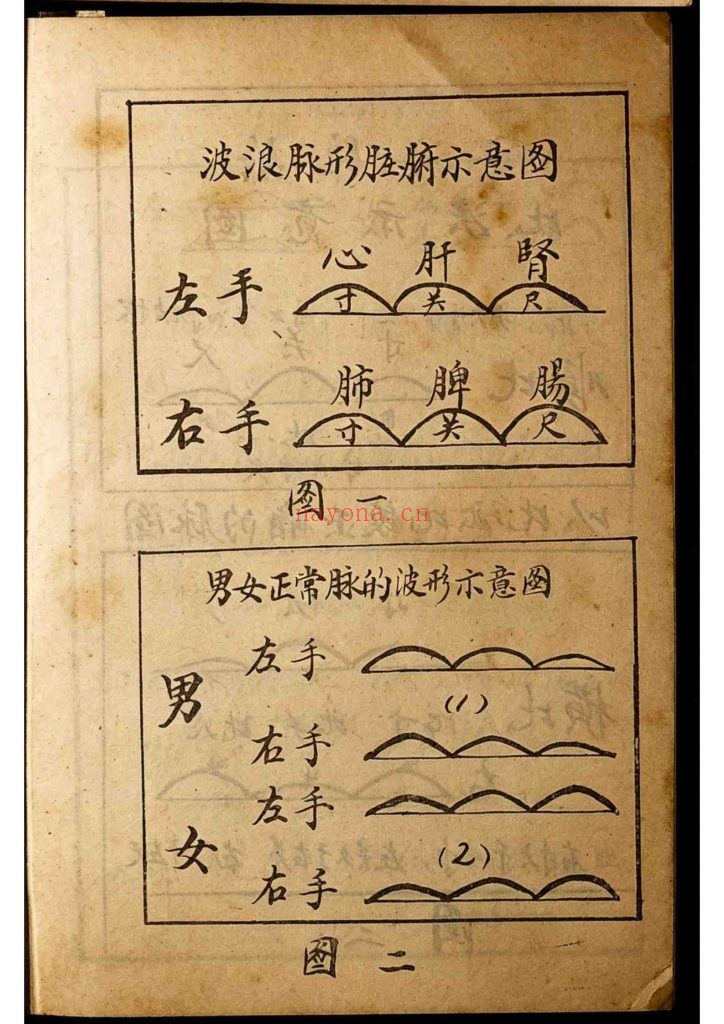 波浪脉形脏腑示意图
心 肝 腎
左手 寸 关 尺
肺 脾 腸
右手 寸 关 尺
图 一
nayona.cn
男女正常脉的波形示意图
左手
男 (1)
右手
左手
女 (2)
右手
图 二